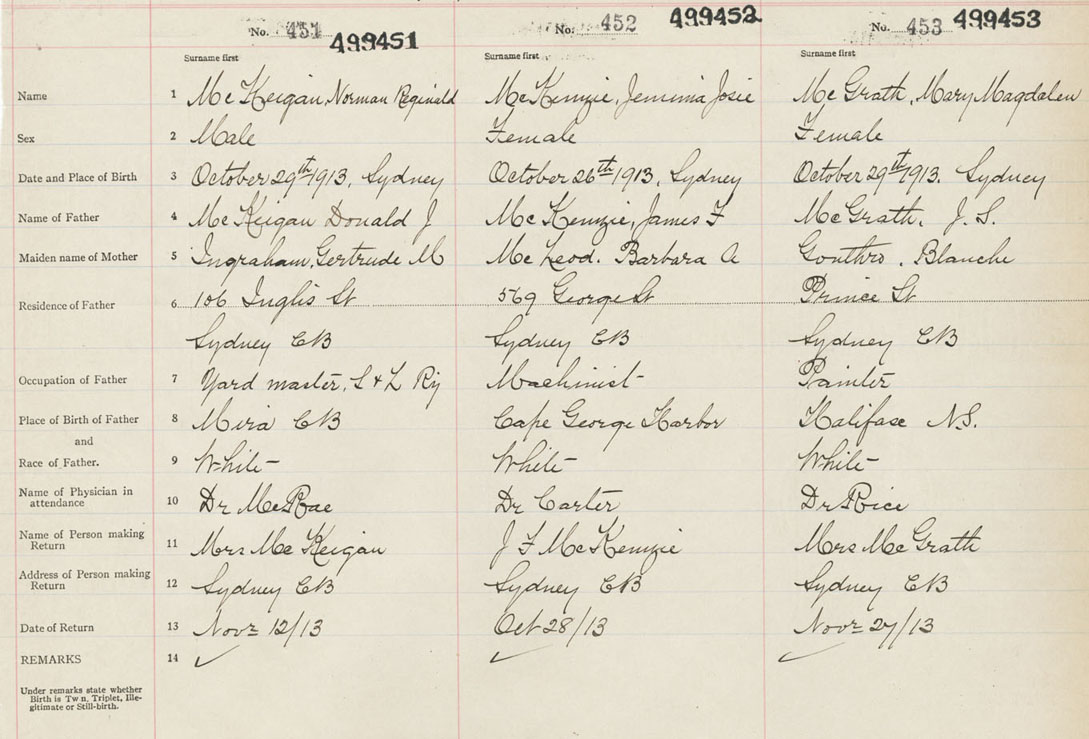 No. 451 499451 No. 452 499452 No. 453 499453
Surname first Surname first Surname first
Name 1 McKeigan, Norman Reginald McKenzie, Jemima Josie McGrath, Mary Magdalen
Sex 2 Male Female Female
Date and Place of Birth 3 October 29th 1913, Sydney October 26th 1913, Sydney October 29th 1913. Sydney
Name of Father 4 McKeigan Donald J McKenzie, James F McGrath, J. S.
Maiden name of Mother 5 Ingraham, Gertrude M McLeod. Barbara A Gouthro, Blanche
Residence of Father 6 106 Inglis St 569 George St Prince St
Sydney CB Sydney CB Sydney CB
Occupation of Father 7 Yard master, S & L Ry Machinist Painter
Place of Birth of Father 8 Mira CB Cape George Harbor Halifax N.S.
and
Race of Father. 9 White White White
Name of Physician in
attendance 10 Dr McRae Dr Carter Dr Rice
Name of Person making
Return 11 Mrs McKeigan J F McKenzie Mrs McGrath
Address of Person making
Return 12 Sydney CB Sydney CB Sydney CB
Date of Return 13 Novr 12/13 Oct 28/13 Novr 27/13
REMARKS 14 ✓ ✓ ✓
Under remarks state whether
Birth is Twn, Triplet, Ille-
gitimate or Still-birth.